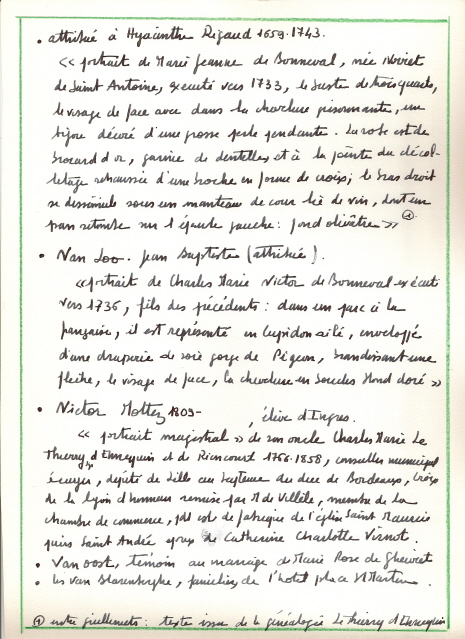 • attribuée à Hyacinthe Rigaud 1659.1743.
« portrait de Marie Jeanne de Bonneval, née Noviet
de Saint Antoine, exécuté vers 1733, le buste de trois quarts,
le visage de face avec dans la chevelure grisonnante, un
bijou décoré d'une grosse perle pendante. La robe est de
brocard d'or, garnie de dentelles et à la pointe du décol-
letage rehaussée d'une broche en forme de croix; le bras droit
se dissimule sous un manteau de cour lie de vin, dont un
pan retombe sur l'épaule gauche : fond olivâtre » ①.
• Van Loo. Jean Baptiste (attribuée).
« portrait de Charles Marie Victor de Bonneval exécuté
vers 1736, fils des précédents : dans un parc à la
française, il est représenté en Cupidon ailé, enveloppé
d'une draperie de soie gorge de Pigeon, brandissant une
flèche, le visage de face, la chevelure en boucles blond doré »
• Victor Mottez 1809- , élève d'Ingres.
« portrait magistral » de son oncle Charles Marie Le
Thierry d'Ennequin et de Riencourt 1766.1858, conseiller municipal
écuyer, député de Lille au baptême du duc de Bordeaux, Croix
de la légion d'honneur remise par M de Villèle, membre de la
chambre de commerce, pdt est de fabrique de l'église Saint Maurice
puis Saint André époux de Catherine Charlotte Virnot.
• Van Oost, témoin au mariage de Marie Rose de
• les van Blarenberghe, familiers de l'hotel place St Martin.
① entre guillemets : texte issu de la généalogie Le Thierry d'Ennequin